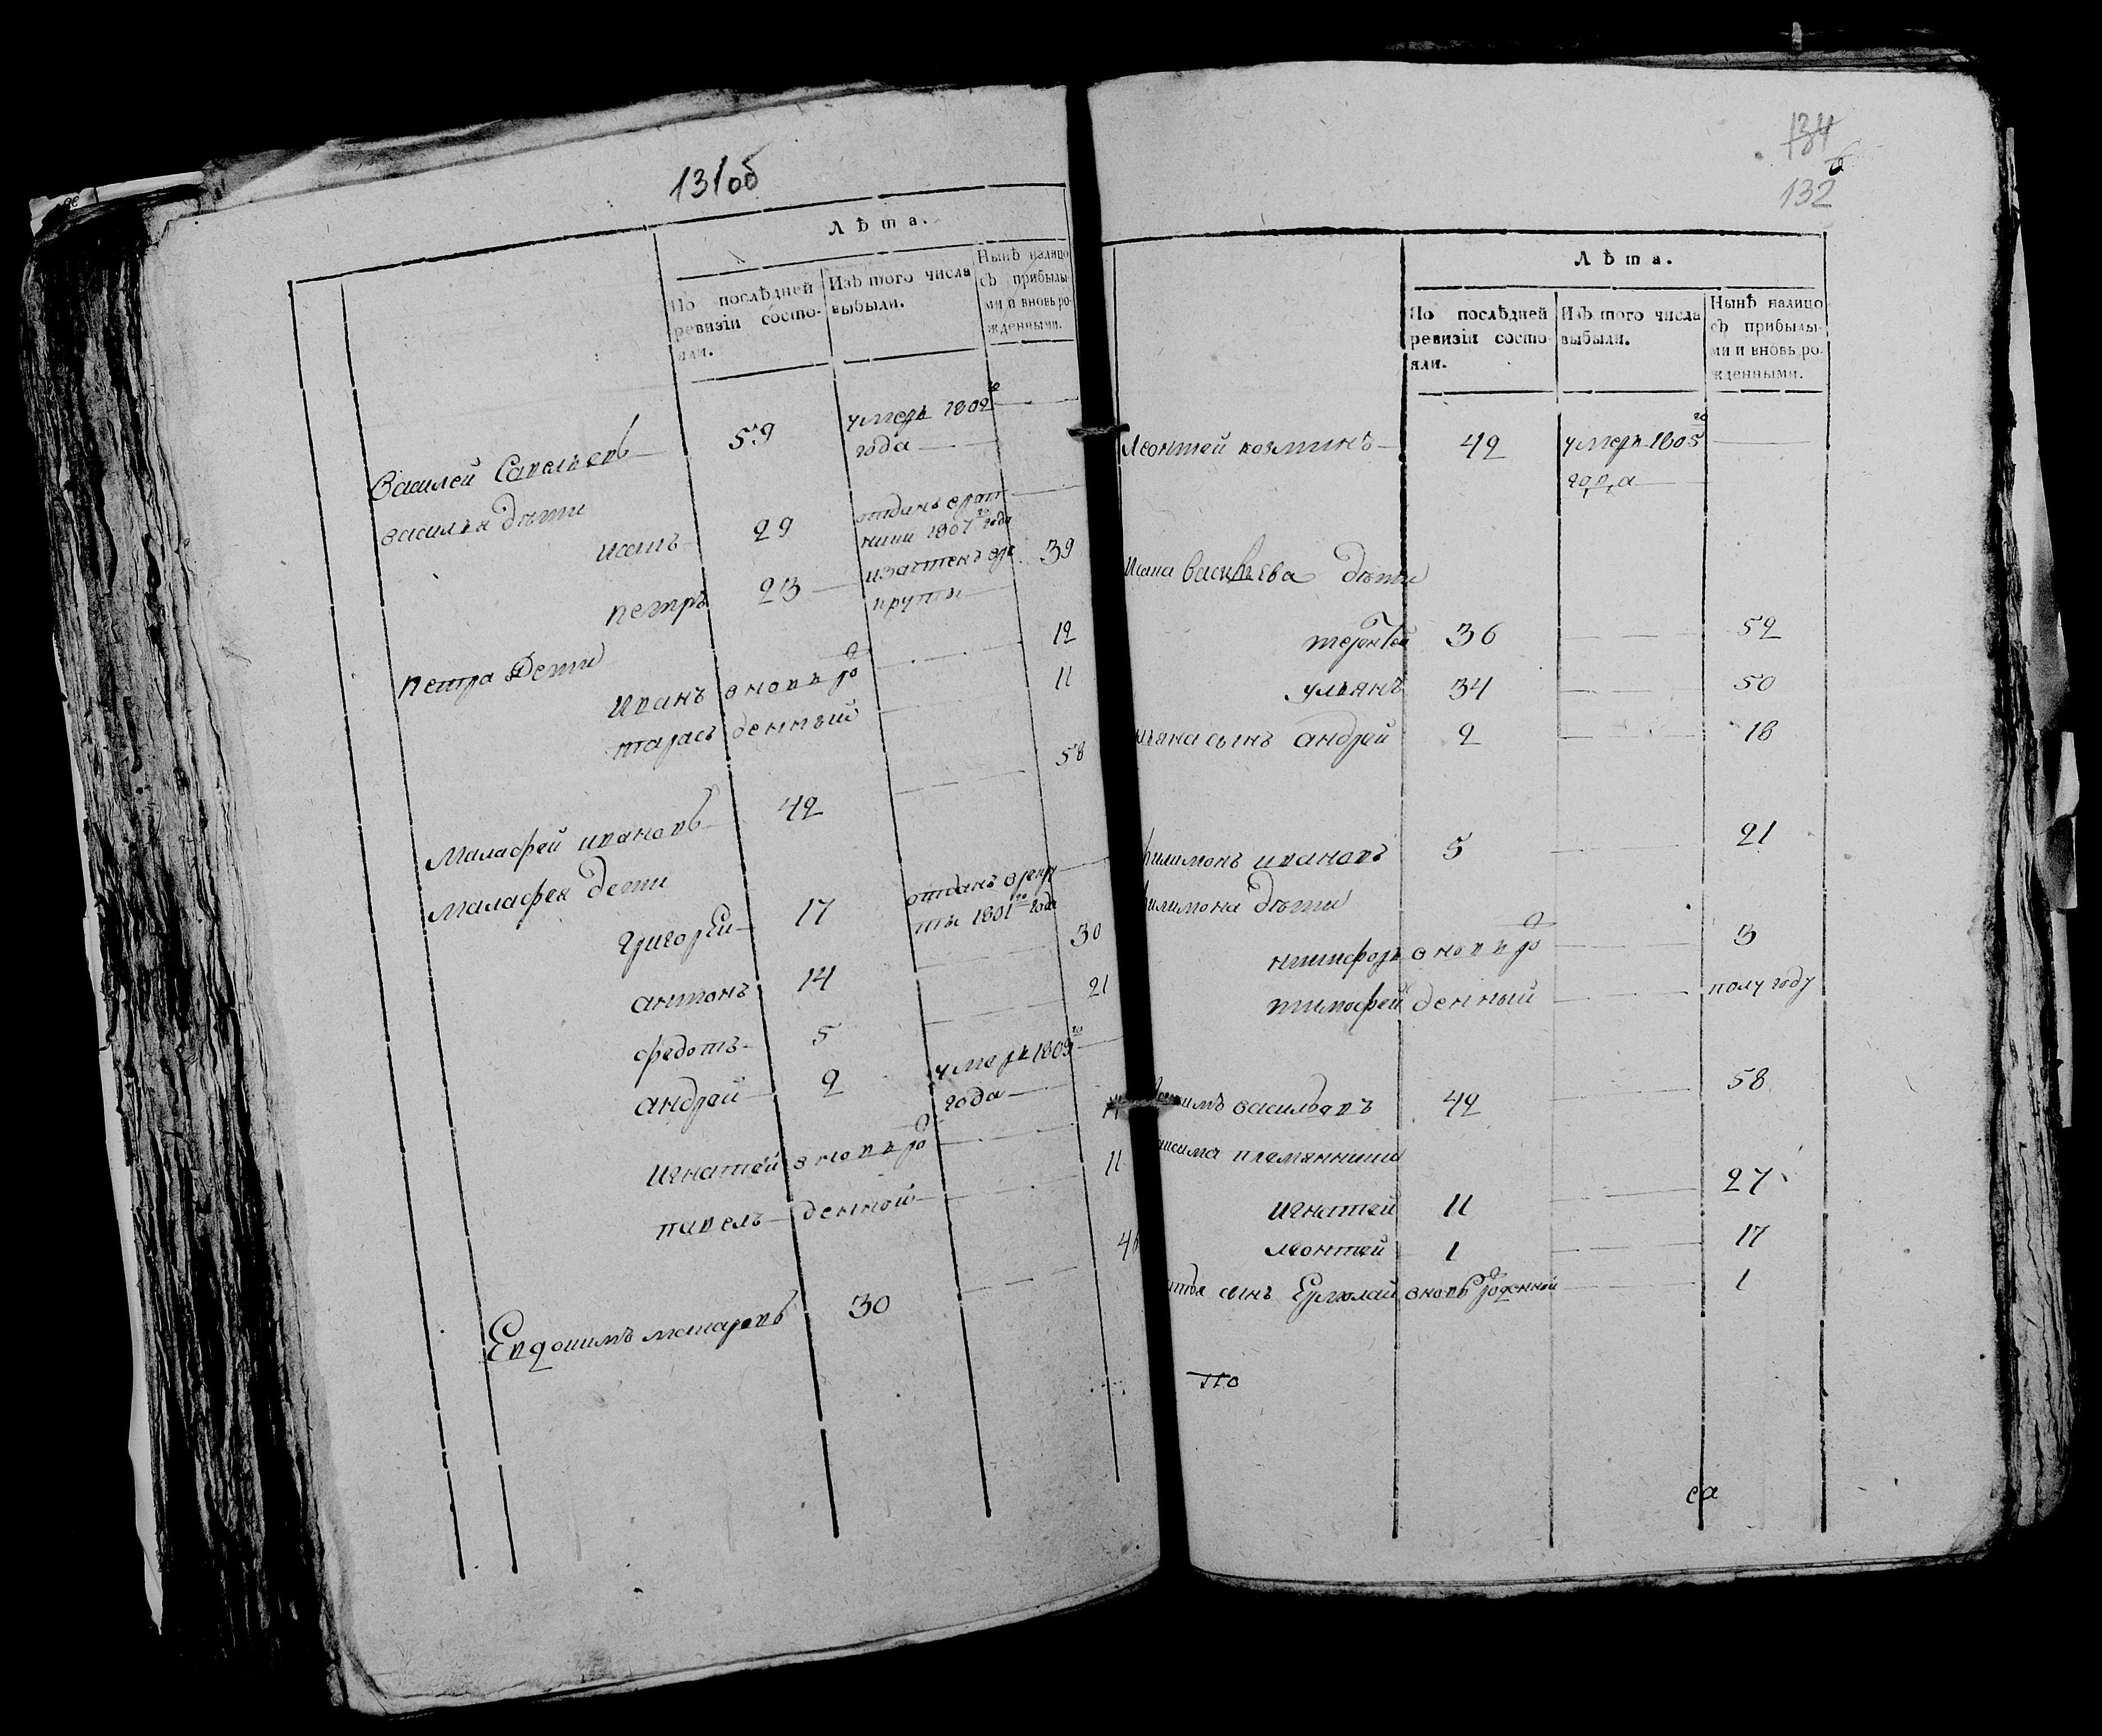 131об
Лѣта.
По послѣдней ревизіи состояли.
Изъ того числа выбыли.
Нынѣ налицо съ прибылыми и вновь рожденными.
Василей Савельевъ 59 умеръ 1802го
года
василья дѣти
исаия 29
1807го года
петръ 23 39
петра дети
иванъ вновь ро 12
тарасъ жденный 11
Маласфей ивановъ 42 58
Маласфея дети
григорей 17 отданъ в рекру
ты 1801го года
антонъ 14 30
федотъ 5 21
андрей 2 умеръ 1803го
года
игнатей вновь ро
павелъ жденной 11
Евдокимъ макаровъ 30
134
132
Лѣта.
По послѣдней ревизіи состояли.
Изъ того числа выбыли.
Нынѣ налицо съ прибылыми и вновь рожденными.
Леонтей козминъ 42 умеръ 1805го
года
Васильева дѣти
терентей 36 52
ульянъ 34 50
сынъ андрей 2 18
филимонъ ивановъ 5 21
филимона дѣти
никифоръ вновь ро 3
тимофей жденный полугоду
васильевъ 42 58
племянники
игнатей 11 27
леонтей 1 17
сынъ Ермолай вновь рожденной 1
по
са